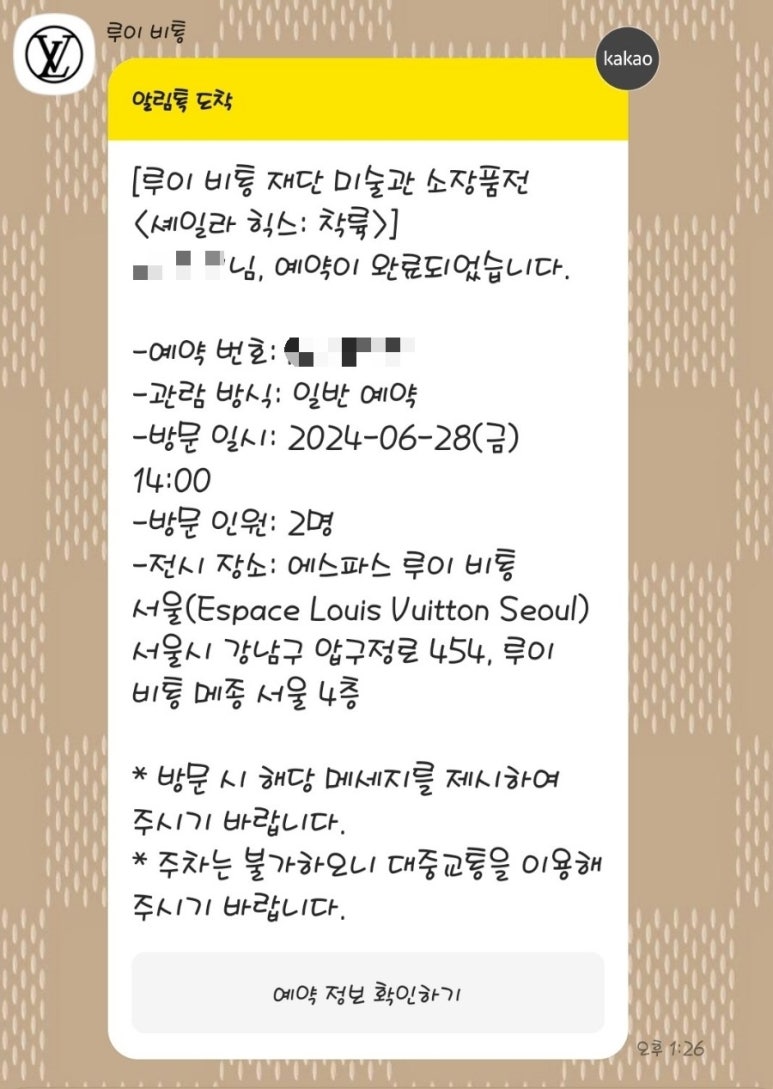 루이 비통
kakao
알림톡 도착
[루이 비통 재단 미술관 소장품전
<셰일라 힉스: 착륙>]
님, 예약이 완료되었습니다.
-예약 번호:
-관람 방식: 일반 예약
-방문 일시: 2024-06-28(금)
14:00
-방문 인원: 2명
-전시 장소: 에스파스 루이 비통
서울(Espace Louis Vuitton Seoul)
서울시 강남구 압구정로 454, 루이
비통 메종 서울 4층
* 방문 시 해당 메세지를 제시하여
주시기 바랍니다.
* 주차는 불가하오니 대중교통을 이용해
주시기 바랍니다.
예약 정보 확인하기
오후 1:26